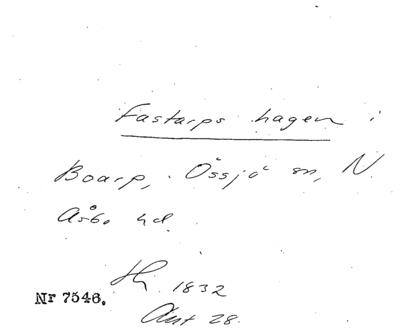 Fastarps hagen i
Boarp, Össjö sn, N.
Åsbo hd.
1832
Nr 7546.
Akt 28.